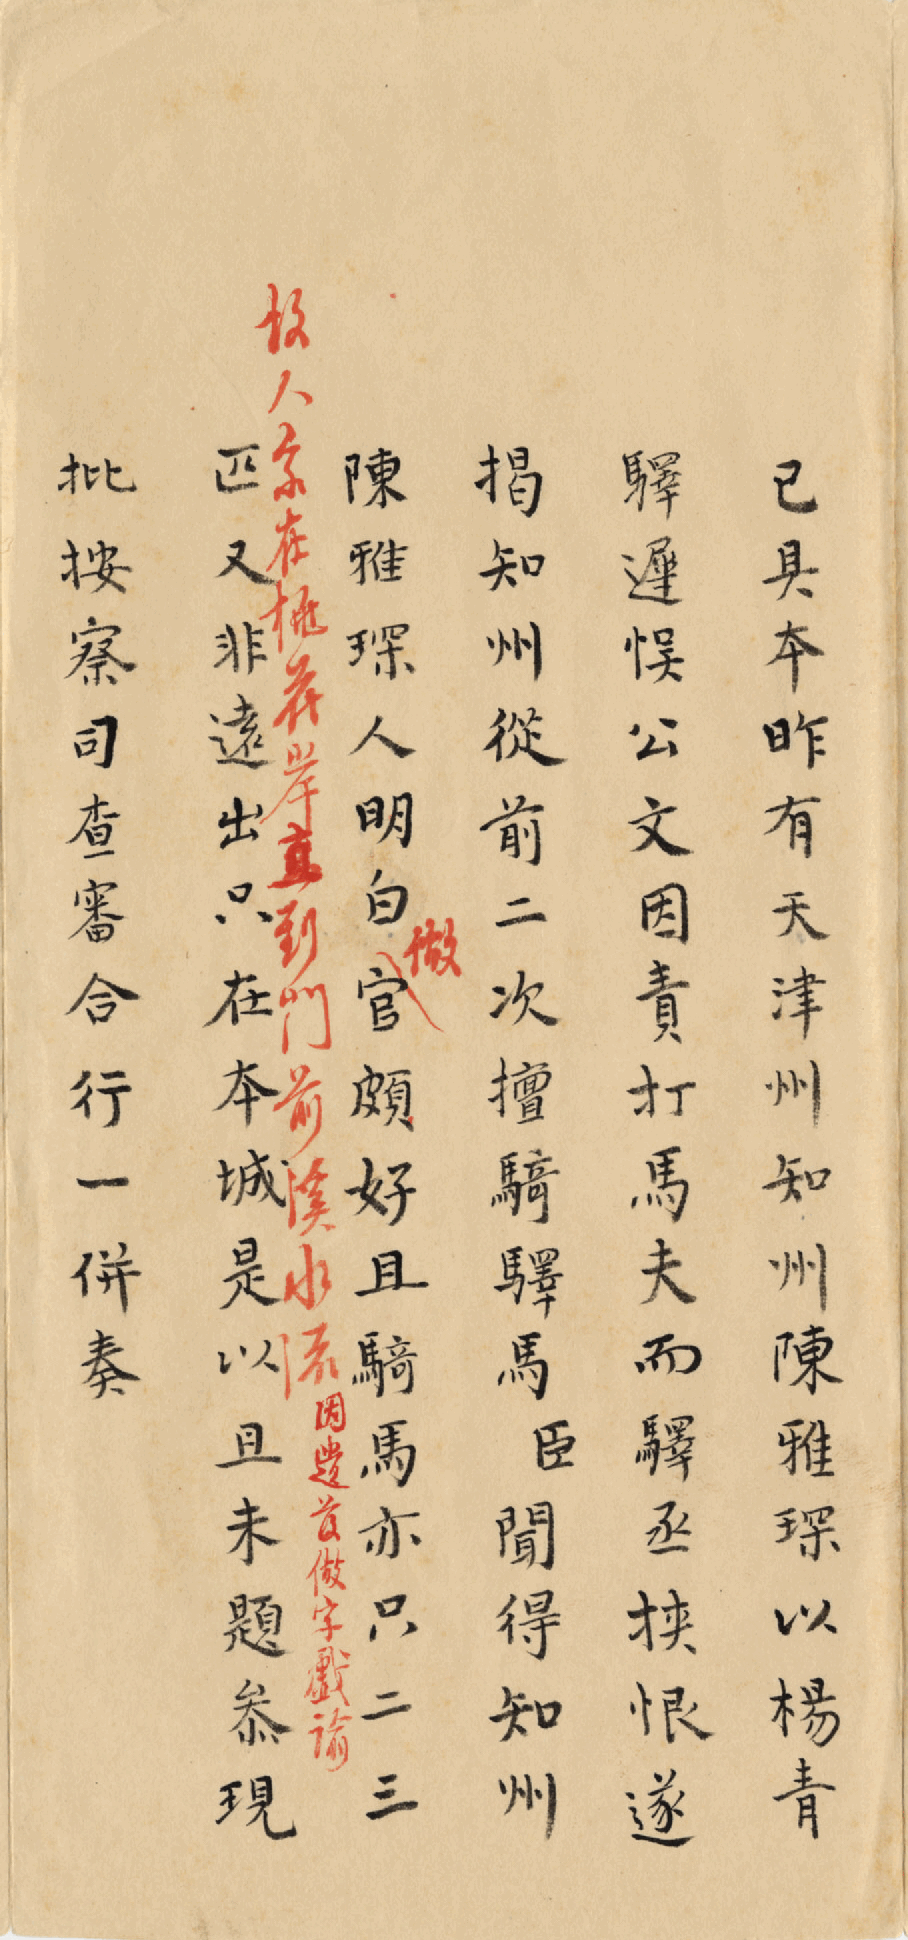 已具本昨有天津州知州陳雅琛以楊青
驛遲悮公文因責打馬夫而驛丞挾恨遂
揭知州從前二次擅騎驛馬臣聞得知州
做
陳雅琛人明白官頗好且騎馬亦只二三
故人家在桃花岸直到門前溪水流因遺做字戲諭
匹又非遠出只在本城是以且未題叅現
批按察司查審合行一併奏